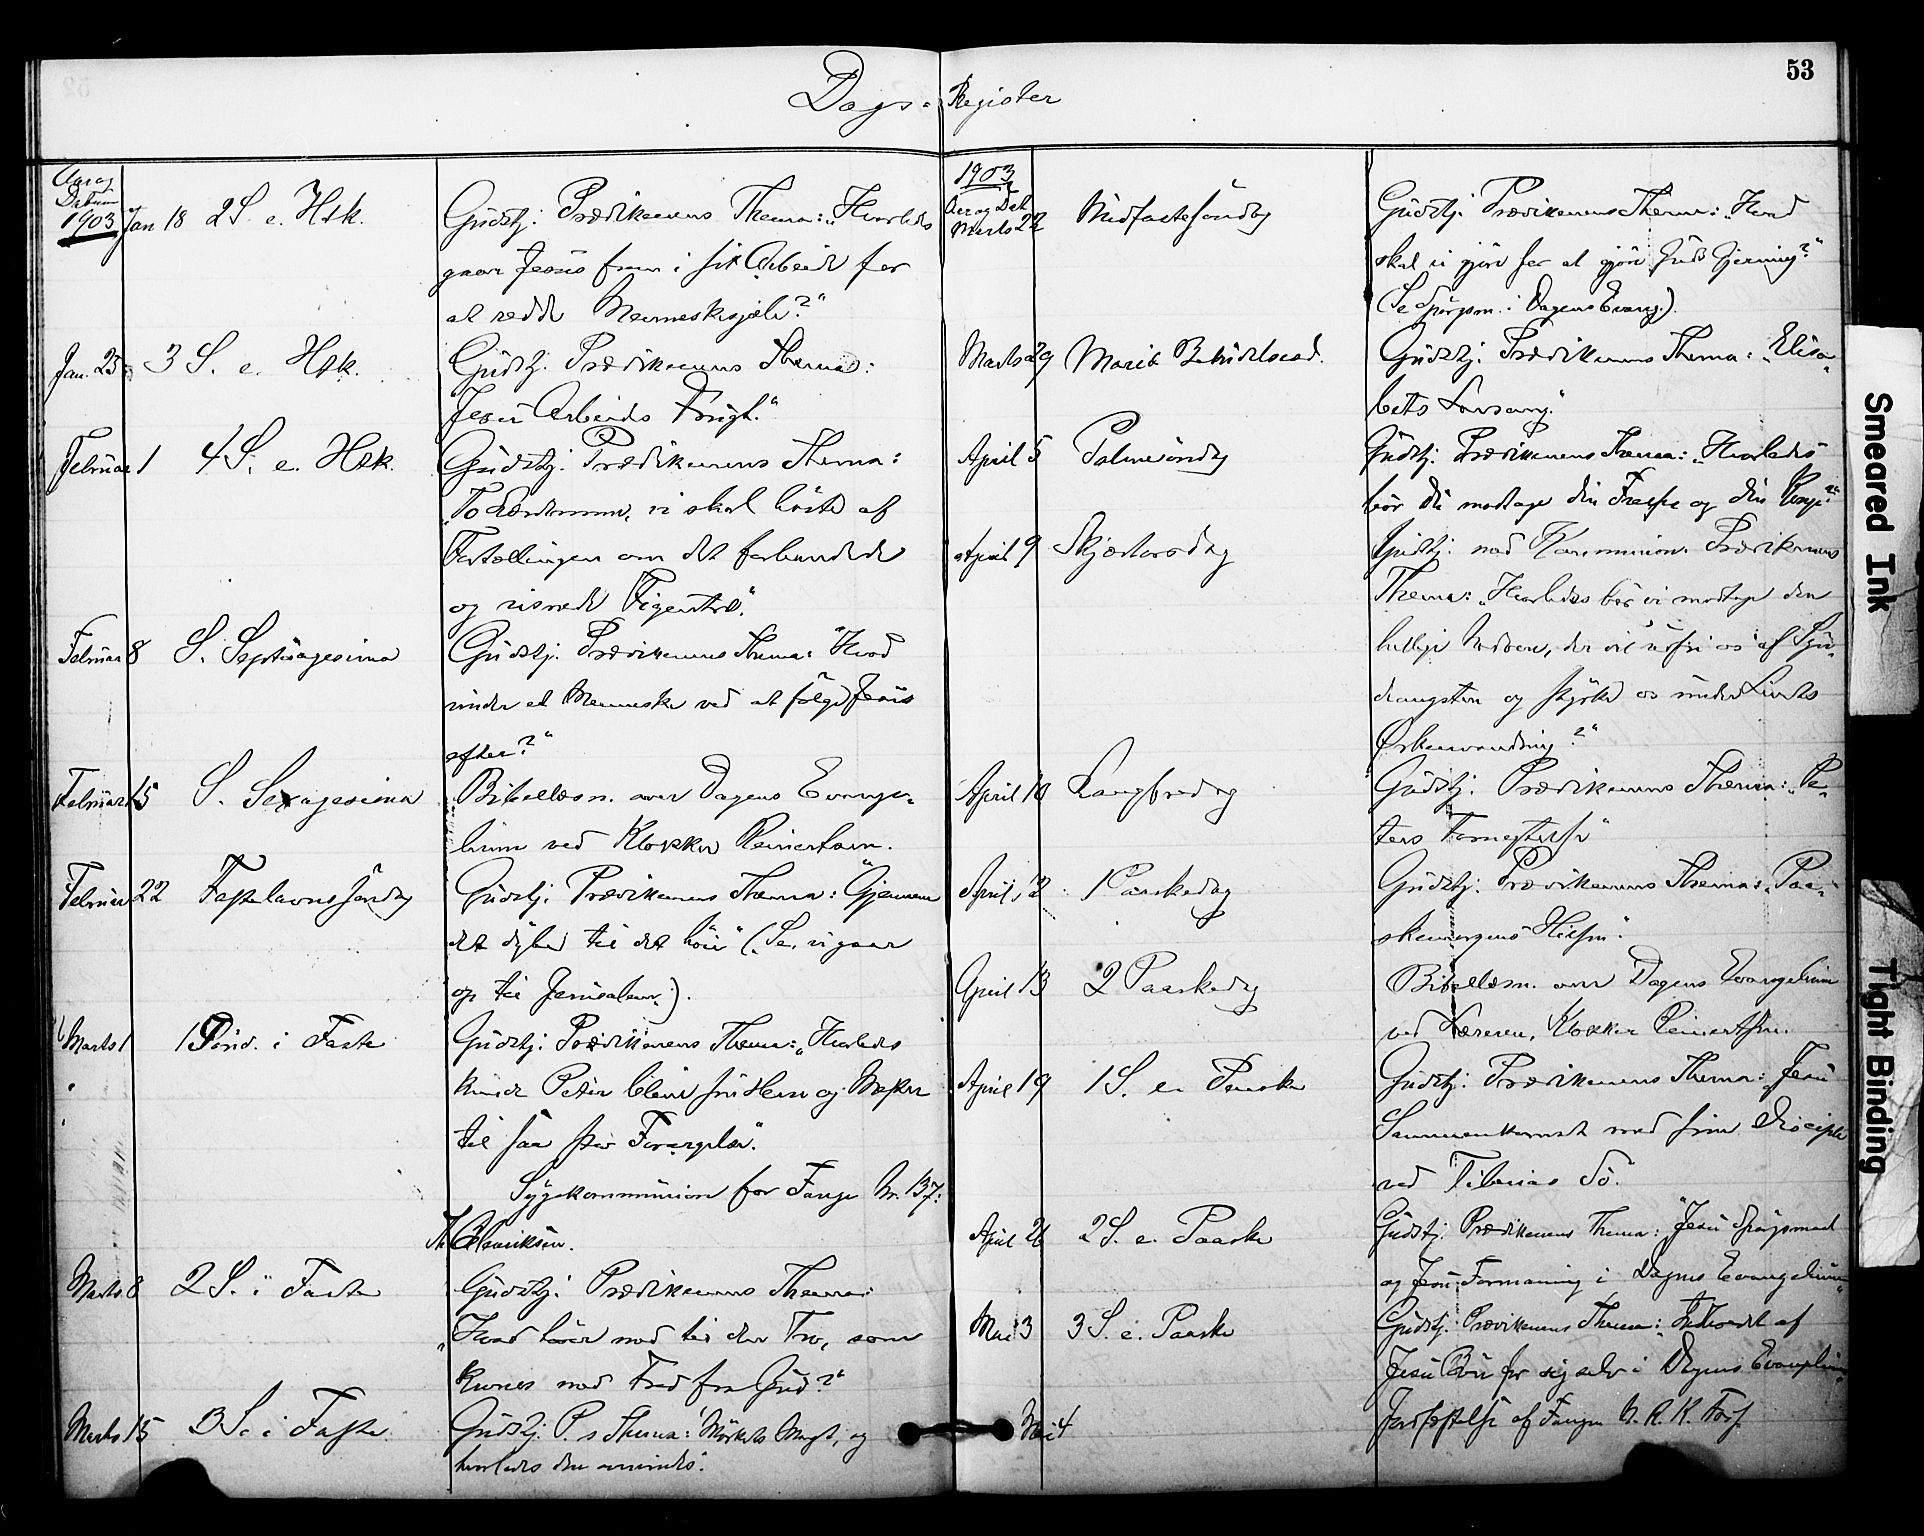 53
Dags-Register
Aar og
Datum
1903 Jan 18 2 S. e. H3k. Gudstj. Prædikenens Thema: „Hvorledes
gaar Jesus frem i sit Arbeide for
at redde Menneskesjæle?"
Jan. 25 3 S. e. H3k. Gudstj. Prædikenens Thema:
Jesu Arbeids Frugt."
Februar 1 4 S. e. H3k. Gudstj. Prædikenens Thema:
„To Lærdomme, vi skal høste af
Fortællingen om det forbandede
og visnede Figentræ."
Februar 8 S. Septuagesima Gudstj. Prædikenens Thema: "Hvad
vinder et Menneske ved at følge Jesus
efter?"
Februar 15 S. Sexagesima Bibellæsn. over Dagens Evange-
lium ved Klokker Reinertsen.
Februar 22 Fastelavnssøndag Gudstj. Prædikenens Thema: "Gjennem
det dybe til det høie" (Se, vi gaar
op til Jerusalem).
Marts 1 1 Sønd. i Faste Gudstj. Prædikenens Thema: „Hvorledes
kunde Peter blive sin Herre og Mester
til saa stor Forargelse".
Sygekommunion for Fange Nr. 137:
Henriksen.
Marts 8 2 S. i Faste Gudstj. Prædikenens Thema:
„Hvad hører med til den Tro, som
krones med Fred fra Gud?"
Marts 15 3 S. i Faste Gudstj. P. s Thema: Mørkets Magt, og
hvorledes den overvindes.
1903
Aar og Dat
Marts 22 Midfastesøndag Gudstj. Prædikenens Thema: „Hvad
skal vi gjøre for at gjøre Guds Gjerning?"
(Se Spørgsm. i Dagens Evang.).
Marts 29 Mariæ Bebudelsesd. Gudstj. Prædikenens Thema: „Elisa-
beths Lovsang."
April 5 Palmesøndag Gudstj. Prædikenens Thema: „Hvorledes
bør du modtage din Frelser og din Konge?"
April 9 Skjærtorsdag Gudstj. med Kommunion. Prædikenens
Thema: „Hvorledes bør vi modtage den
hellige Nadvere, der vil udfri os af Syn-
deangsten og styrke os under Livets
Ørkenvandring?"
April 10 Langfredag Gudstj. Prædikenens Thema: „Pe-
ters Fornegtelse"
April 12 1 Paaskedag Gudstj. Prædikenens Thema: „Paa-
skemorgens Hilsen".
April 13 2 Paaskedag Bibellæsn. over Dagens Evangelium
ved Læreren, Klokker Reinertsen.
April 19 1 S. e. Paaske Gudstj. Prædikenens Thema: Jesu
Sammenkomst med sine Disciple
ved Tiberias Sø.
April 26 2 S. e. Paaske Gudstj. Prædikenens Thema: "Jesu Spørgsmaal
og Jesu Formaning i Dagens Evangelium"
Mai 3 3 S. e. Paaske Gudstj. Prædikenens Thema: „Indholdet af
Jesu Bøn for sig selv i Dagens Evangelium"
Mai 4 Jordfæstelse af Fangen N. R. K.
Smeared Ink
Tight Binding